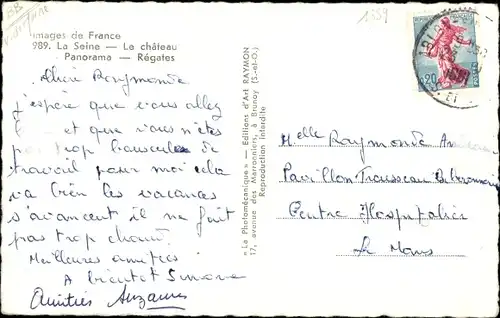 1959
Images de France
989. La Seine — Le château
Panorama — Régates
Chère Raymonde
J'espère que vous allez
et que vous n'êtes
pas trop bousculée de
travail pour moi cela
va bien les vacances
s'avancent il ne fait
pas trop chaud.
Meilleures amitiés
A bientôt Simone
Amitiés Suzanne
« La Photomécanique » — Editions d'Art RAYMON
17, avenue des Marronniers, à Brunoy (S.-et-O.)
Reproduction interdite
0,20
Melle Raymonde
Pavillon Trousseau
Centre Hospitalier
Le Mans